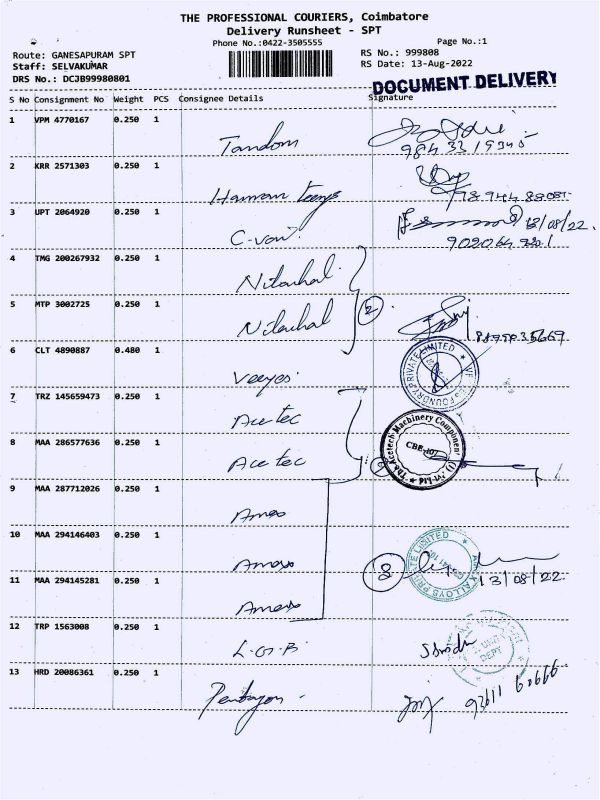 THE PROFESSIONAL COURIERS, Coimbatore
Delivery Runsheet - SPT
Phone No.:0422-3505555
Page No.:1
Route: GANESAPURAM SPT
RS No.: 999808
Staff: SELVAKUMAR
RS Date: 13-Aug-2022
DRS No.: DCJB99980801
DOCUMENT DELIVERY
S No Consignment No Weight PCS Consignee Details Signature
1 VPM 4770167 0.250 1
Tandom
2 KRR 2571303 0.250 1
Hannan
3 UPT 2064920 0.250 1
13/08/22.
C-von
4 TMG 200267932 0.250 1
Nilachal
5 MTP 3002725 0.250 1
2
Nilachal
6 CLT 4890887 0.480 1
Veeyes
PRIVATE LIMITED
FOUNDRY
7 TRZ 145659473 0.250 1
Acetec
The Acetech Machinery Components (I) Pvt Ltd
CBE-107
8 MAA 286577636 0.250 1
Acetec
9 MAA 287712026 0.250 1
Amex
10 MAA 294146403 0.250 1
Amex
3
ALLOYS PRIVATE LIMITED
11 MAA 294145281 0.250 1
13/08/22.
Amex
12 TRP 1563008 0.250 1
L.G.B
DEPT
13 HRD 20086361 0.250 1
Pentagon